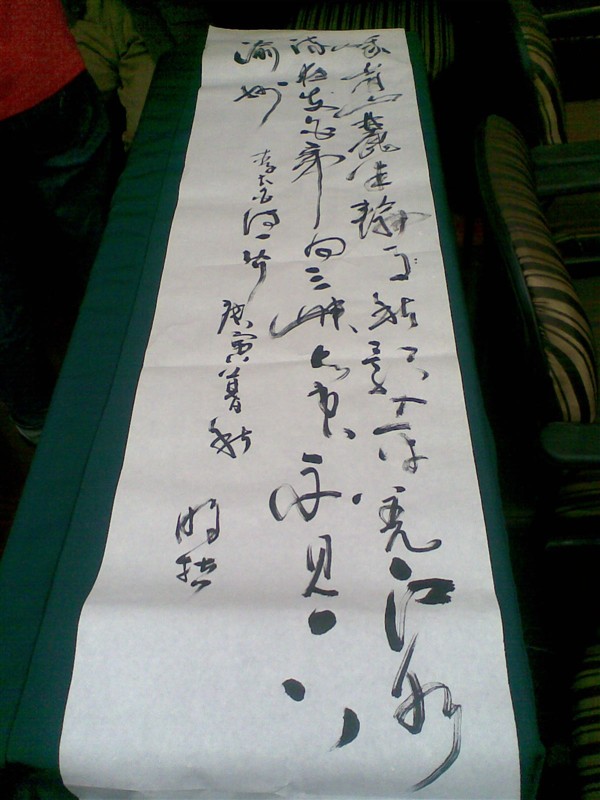 峨眉山半轮秋影入平羌江水
流夜发向三峡思君不见下
渝州
李太白诗一首
庚寅暮秋